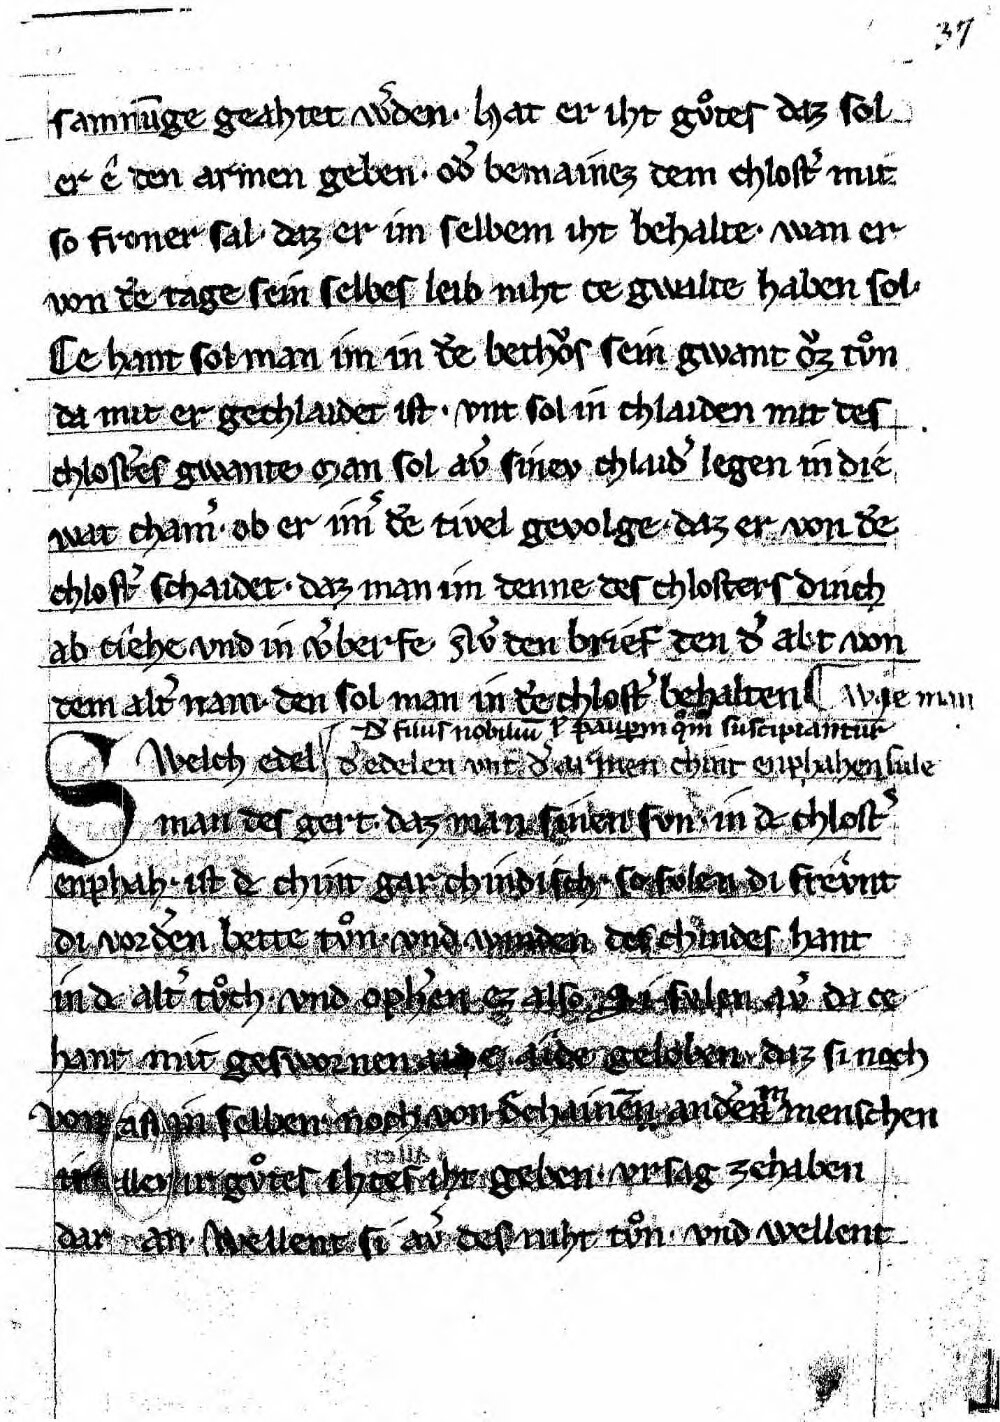 37
samnūge geahtet w̓den · Hat er iht gůtes daz sol
er ê den armen geben · od̓ bemainez dem chlost̓ mit
so froner sal · daz er im selbem iht behalte · wan er
von d̓e tage sein selbes leib niht ce gwalte haben sol ·
Ce hant sol man im in d̓e beth̓os sein gwant tůn
da mit er gechlaidet ist · vnt sol in chlaiden mit des
chlost̓es gwante man sol av̓ sinev chlaid̓ legen in die
wat cham̓ · ob er im̓ d̓e tivel gevolge · daz er von d̓e
chlost̓ schaidet · daz man im denne des chlosters dinch
ab ciêhe vnd in v̓berfe Av̓ den brief den d̓ abt von
dem alt̓ nam · den sol man in d̓e chlost̓ behalten Wie man
D̓ filiis nobiliū suscipiantur
Swelch edel d̓ edelen vnt d̓ armen chint enphahen sule
man des gert · daz man sinen svn · in d̓ chlost̓
enphah · ist d̓ chint gar chindisch · so svlen di frevnt
di vord̓en bette tůn · vnd winden des chindes hant
in d̓ alt̓ tůch · vnd oph̓en ez also Si svlen av̓ da ce
hant mit geswornen aide geloben · daz si noch
von in selben · noch von dehainē and̓en m menschen
aller ir gůtes ihtes iht geben · vrsag zehaben
dar an · Wellent si av̓ des niht tůn · vnd wellent